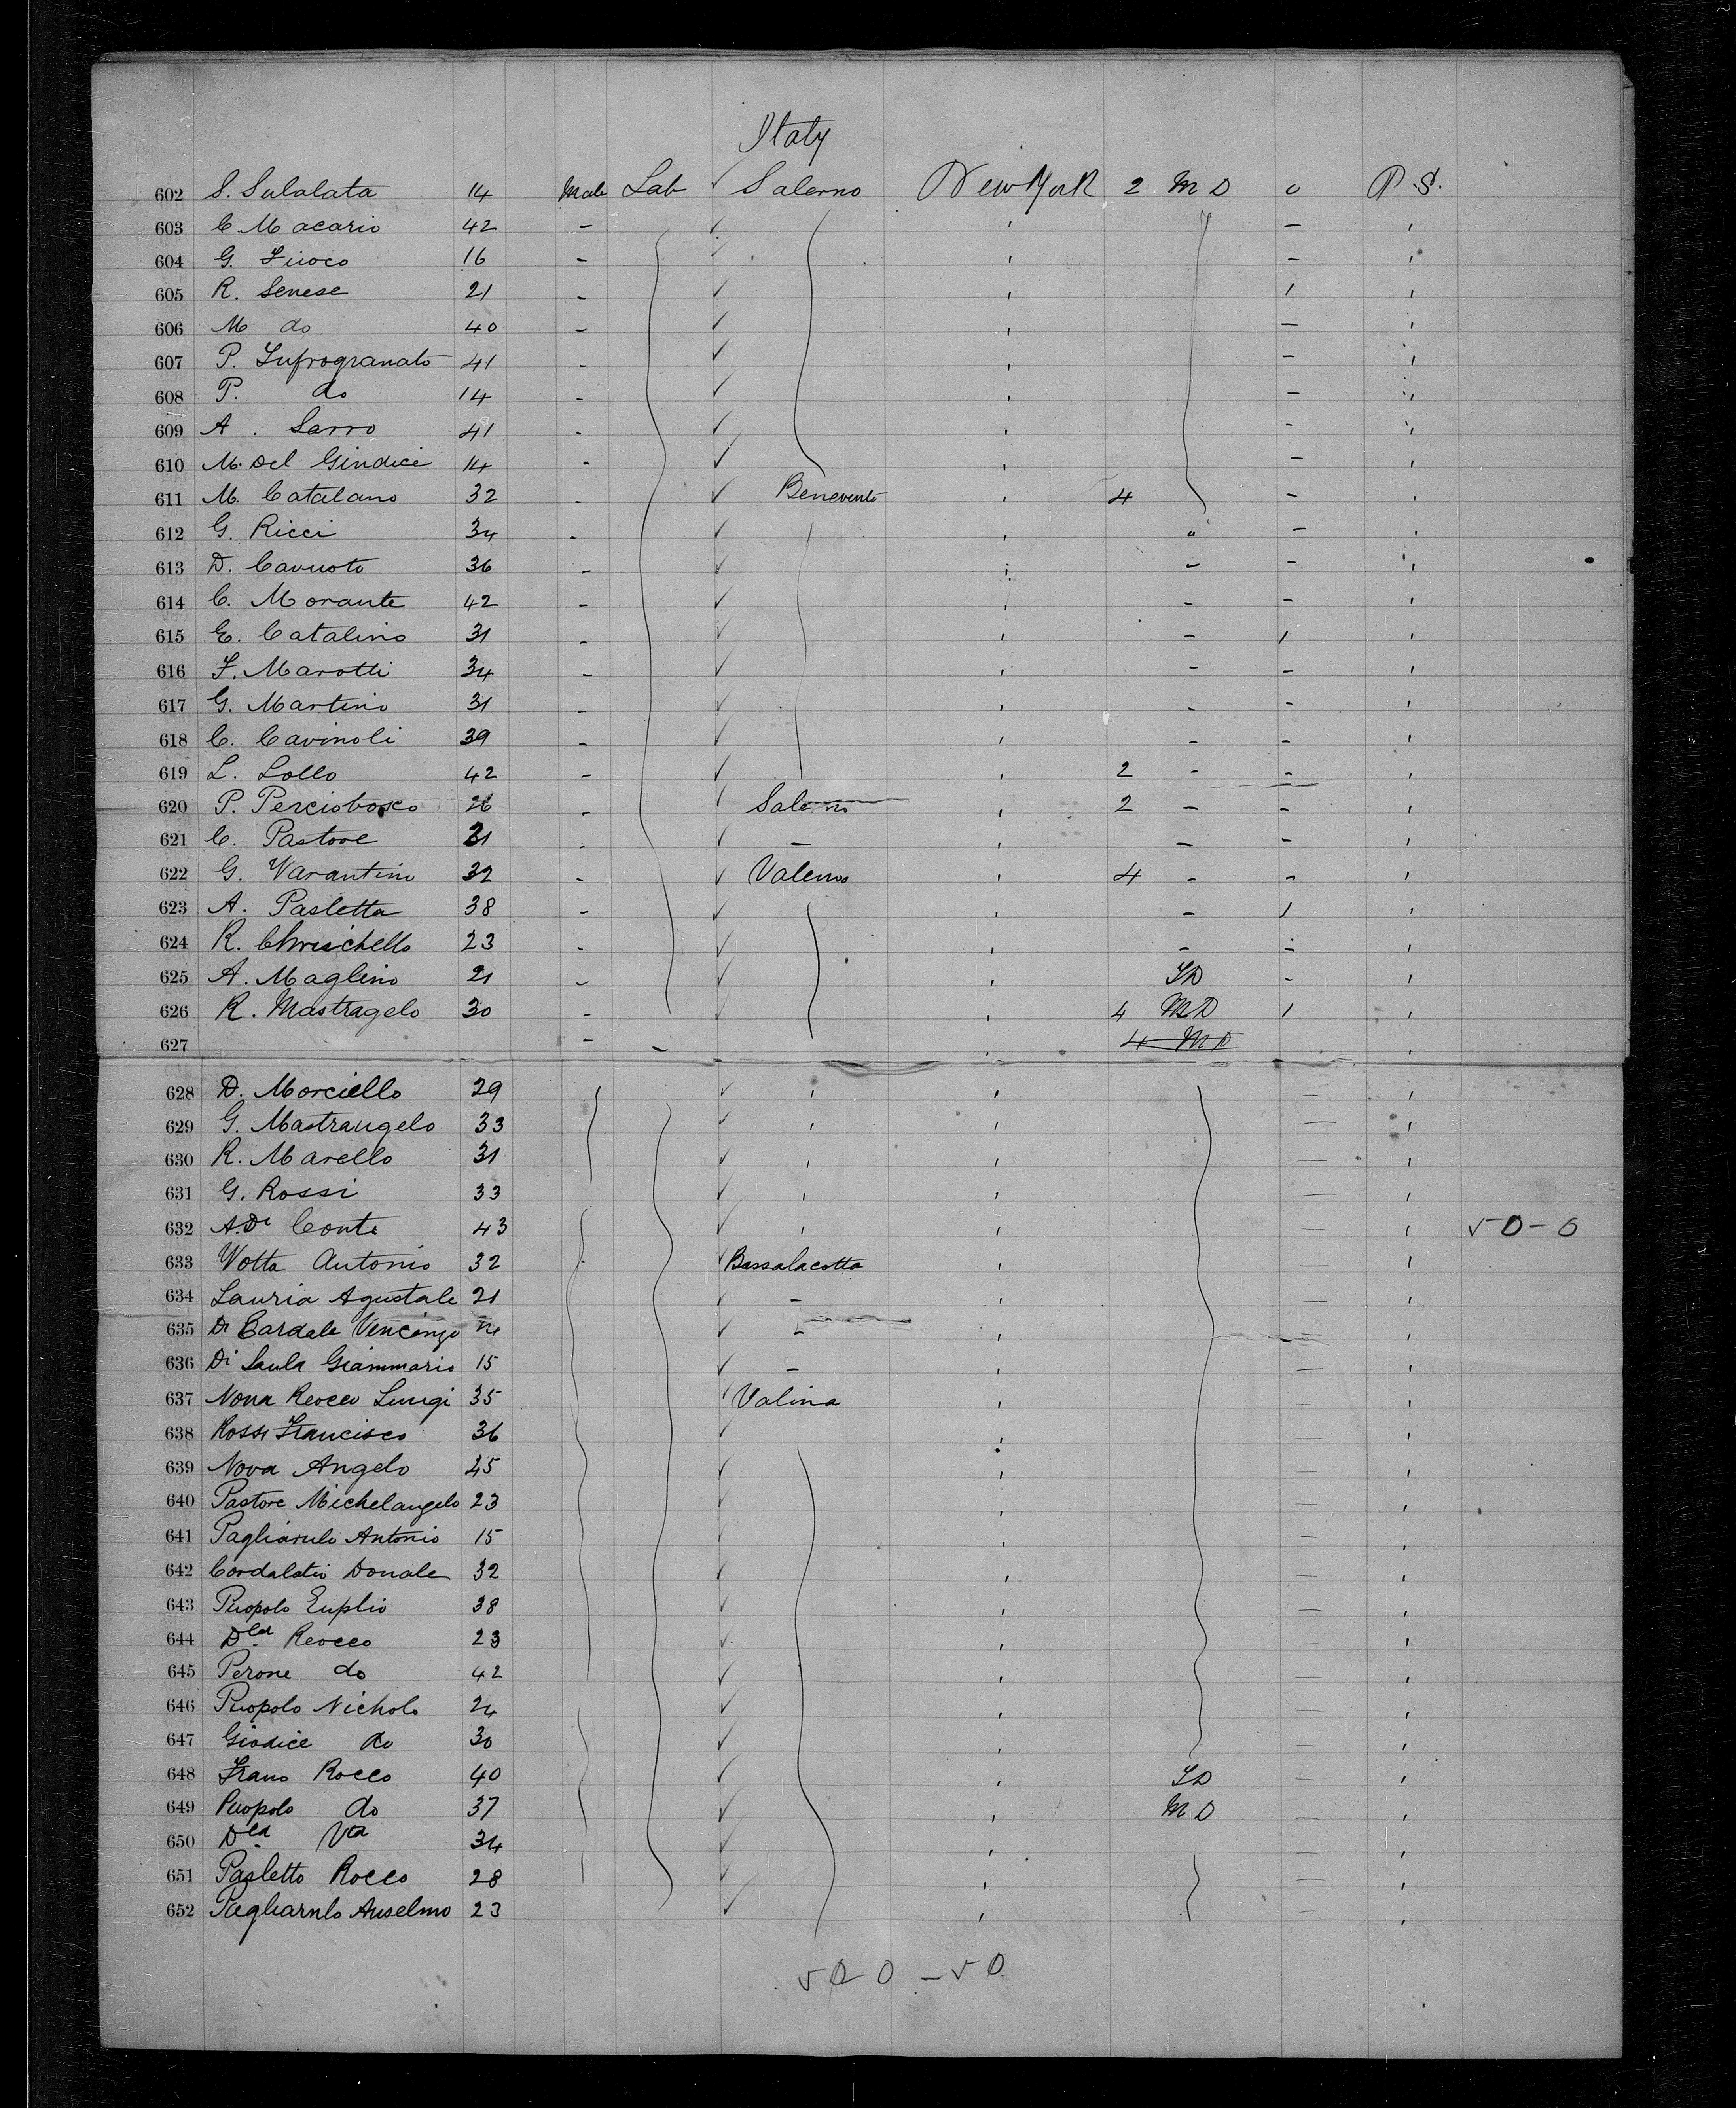 Italy
602 S. Sulalata 14 Male Lab ✓ Salerno New York 2 M D 0 P. S.
603 C. Macario 42 - ✓ ' - '
604 G. Fuoco 16 - ✓ ' - '
605 R. Senese 21 - ✓ ' 1 '
606 M do 40 - ✓ ' - '
607 P. Infrogranato 41 - ✓ ' - '
608 P. do 14 - ✓ ' - '
609 A. Sarro 41 - ✓ ' - '
610 M. Del Gindice 14 - ✓ ' - '
611 M. Catalano 32 - ✓ Benevento ' 4 - '
612 G. Ricci 34 - ✓ ' " - '
613 D. Cavuoto 36 - ✓ ' - - '
614 C. Morante 42 - ✓ ' - - '
615 E. Catalino 31 - ✓ ' - 1 '
616 F. Marotti 34 - ✓ ' - - '
617 G. Martino 31 - ✓ ' - - '
618 C. Cavinoli 39 - ✓ ' - - '
619 L. Lollo 42 - ✓ ' 2 - - '
620 P. Perciobosco 26 - ✓ Salerno ' 2 - - '
621 C. Pastore 31 - ✓ - ' - - '
622 G. Varantino 32 - ✓ Valenno ' 4 - - '
623 A. Pasletta 38 - ✓ ' - 1 '
624 R. Chruschello 23 - ✓ ' - - '
625 A. Maglino 21 - ✓ ' SD - '
626 R. Mastragelo 30 - ✓ ' 4 MD 1 '
627 - - ' 4 MD '
628 D. Morciello 29 ✓ ' ' - '
629 G. Mastrangelo 33 ✓ ' ' - '
630 R. Marello 31 ✓ ' ' - '
631 G. Rossi 33 ✓ ' ' - '
632 A. Di Conti 43 ✓ ' ' - ' 50-0
633 Votta Antonio 32 ✓ Bassalacotta ' - '
634 Lauria Agustale 21 ✓ - ' - '
635 Di Cardale Vencenzo 24 ✓ - ' - '
636 Di Saula Giammario 15 ✓ - ' - '
637 Nona Reocco Luugi 35 ✓ Valina ' - '
638 Rossi Francisco 36 ✓ ' - '
639 Nova Angelo 45 ✓ ' - '
640 Pastore Michelangelo 23 ✓ ' - '
641 Pagliarulo Antonio 15 ✓ ' - '
642 Cordalatio Donale 32 ✓ ' - '
643 Puopolo Euplio 38 ✓ ' - '
644 Dla Reocco 23 ✓ ' '
645 Perone do 42 ✓ ' - '
646 Puopolo Nicholo 24 ✓ ' - '
647 Giodice do 30 ✓ ' - '
648 Frano Rocco 40 ✓ ' SD - '
649 Puopolo do 37 ✓ ' MD - '
650 Dla Vta 34 ✓ ' - '
651 Pasletto Rocco 28 ✓ ' - '
652 Pagliarulo Anselmo 23 ✓ ' - '
500-50